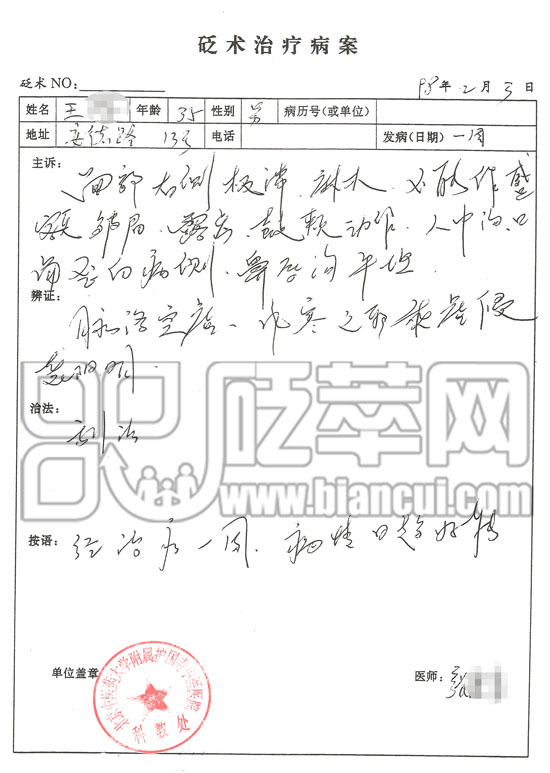 砭术治疗病案
砭术NO: 98年2月3日
姓名 王 年龄 35 性别 男 病历号(或单位)
地址 安德路13号 电话 发病(日期) 一周
主诉:
面部右侧板滞、麻木、不能作蹙
额、皱眉、露齿、鼓颊动作、人中沟、口
病侧、鼻唇沟平坦
辨证:
脉络空虚、风寒之邪乘虚侵
治法:
刮法
砭萃网
www.biancui.com
按语: 经治疗一周、病情日趋好转
单位盖章
北京中医药大学附属护国寺中医医院
科教处
医师: